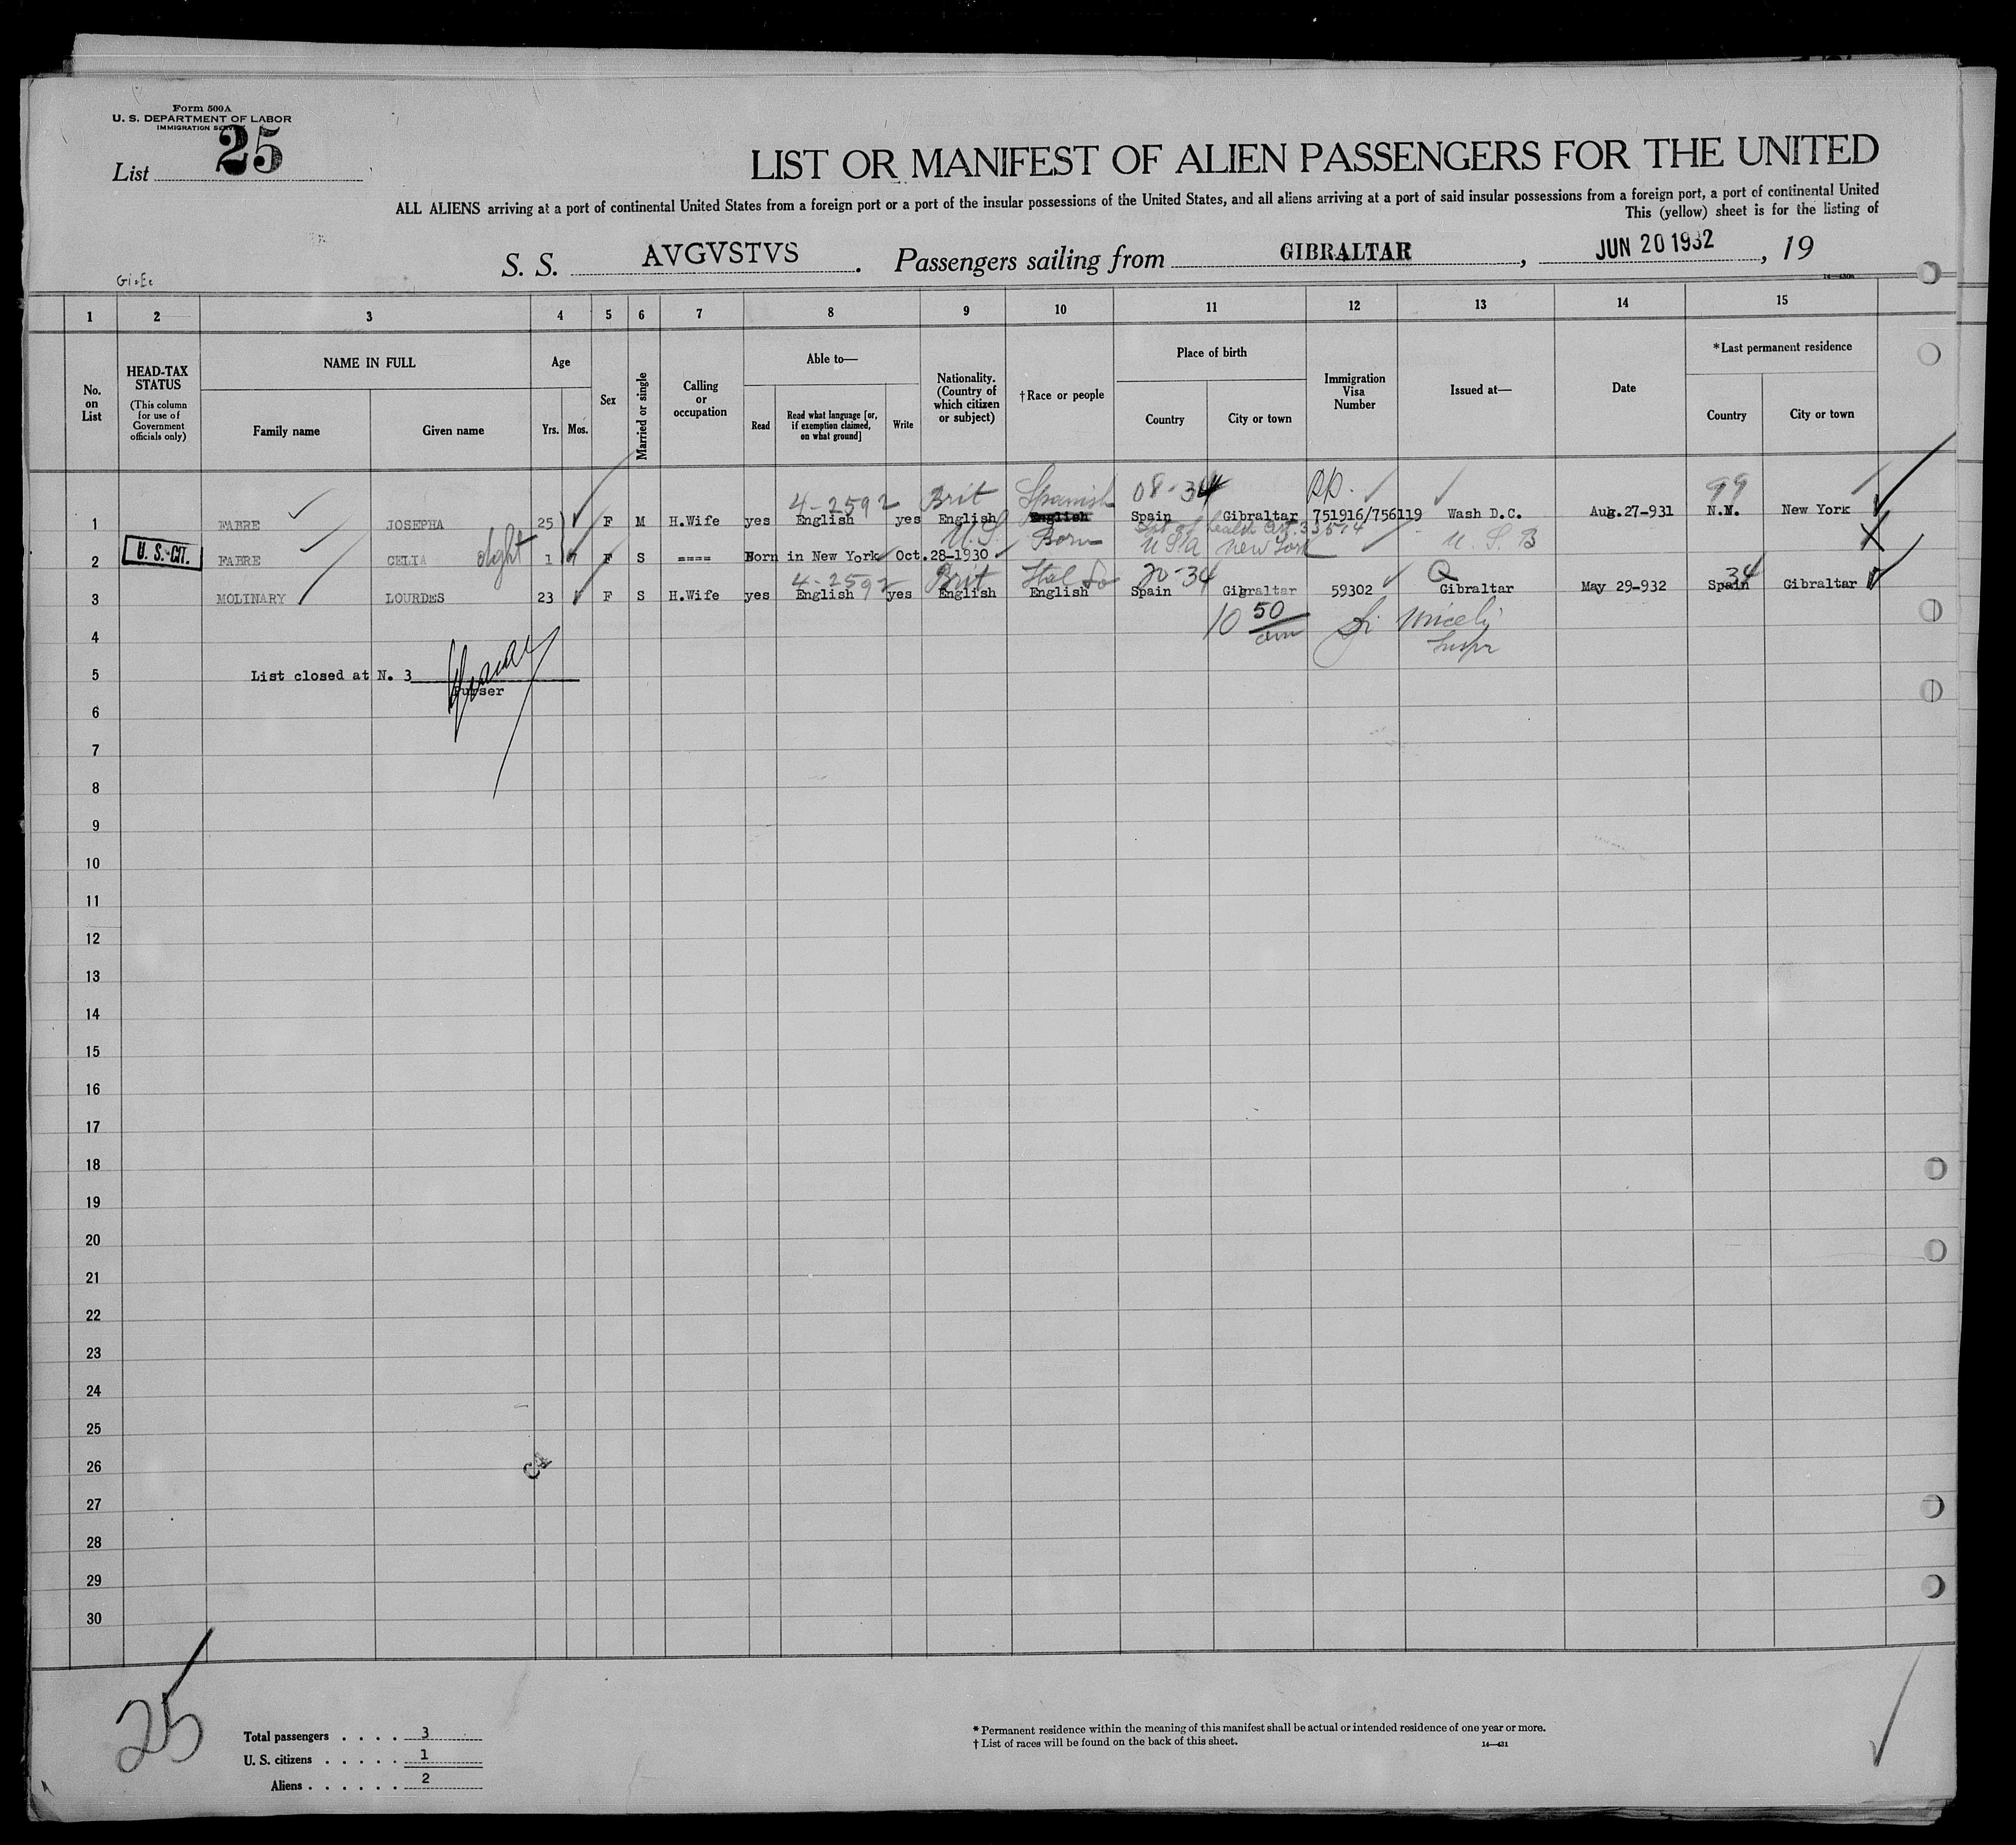 Form 500A
U. S. DEPARTMENT OF LABOR
IMMIGRATION
List 25
LIST OR MANIFEST OF ALIEN PASSENGERS FOR THE UNITED
ALL ALIENS arriving at a port of continental United States from a foreign port or a port of the insular possessions of the United States, and all aliens arriving at a port of said insular possessions from a foreign port, a port of continental United
This (yellow) sheet is for the listing of
S. S. AVGVSTVS. Passengers sailing from GIBRALTAR, JUN 20 1932, 19
1 2 3 4 5 6 7 8 9 10 11 12 13 14 15
No. on List
HEAD-TAX STATUS
(This column for use of Government officials only)
NAME IN FULL
Family name
Given name
Age
Yrs.
Mos.
Sex
Married or single
Calling or occupation
Able to—
Read
Read what language [or, if exemption claimed, on what ground]
Write
Nationality. (Country of which citizen or subject)
†Race or people
Place of birth
Country
City or town
Immigration Visa Number
Issued at—
Date
*Last permanent residence
Country
City or town
4-2592 Brit Spanish 08-34 99
1 FABRE JOSEPHA 25 F M H.Wife yes English yes English English Spain Gibraltar 751916/756119 Wash D.C. Aug.27-931 N.Y. New York
U.S. Born USA New York U. S. B
2 U. S.-CIT. FABRE CELIA 1 7 F S ==== Born in New York Oct.28-1930
4-2592 Brit Ital So 20-34 Q 34
3 MOLINARY LOURDES 23 F S H.Wife yes English yes English English Spain Gibraltar 59302 Gibraltar May 29-932 Spain Gibraltar
10 50 am
Inspr
4
5 List closed at N. 3
Purser
6
7
8
9
10
11
12
13
14
15
16
17
18
19
20
21
22
23
24
25
26
27
28
29
30
25
Total passengers . . . . 3
U. S. citizens . . . . . 1
Aliens . . . . . . 2
* Permanent residence within the meaning of this manifest shall be actual or intended residence of one year or more.
† List of races will be found on the back of this sheet.
14—431